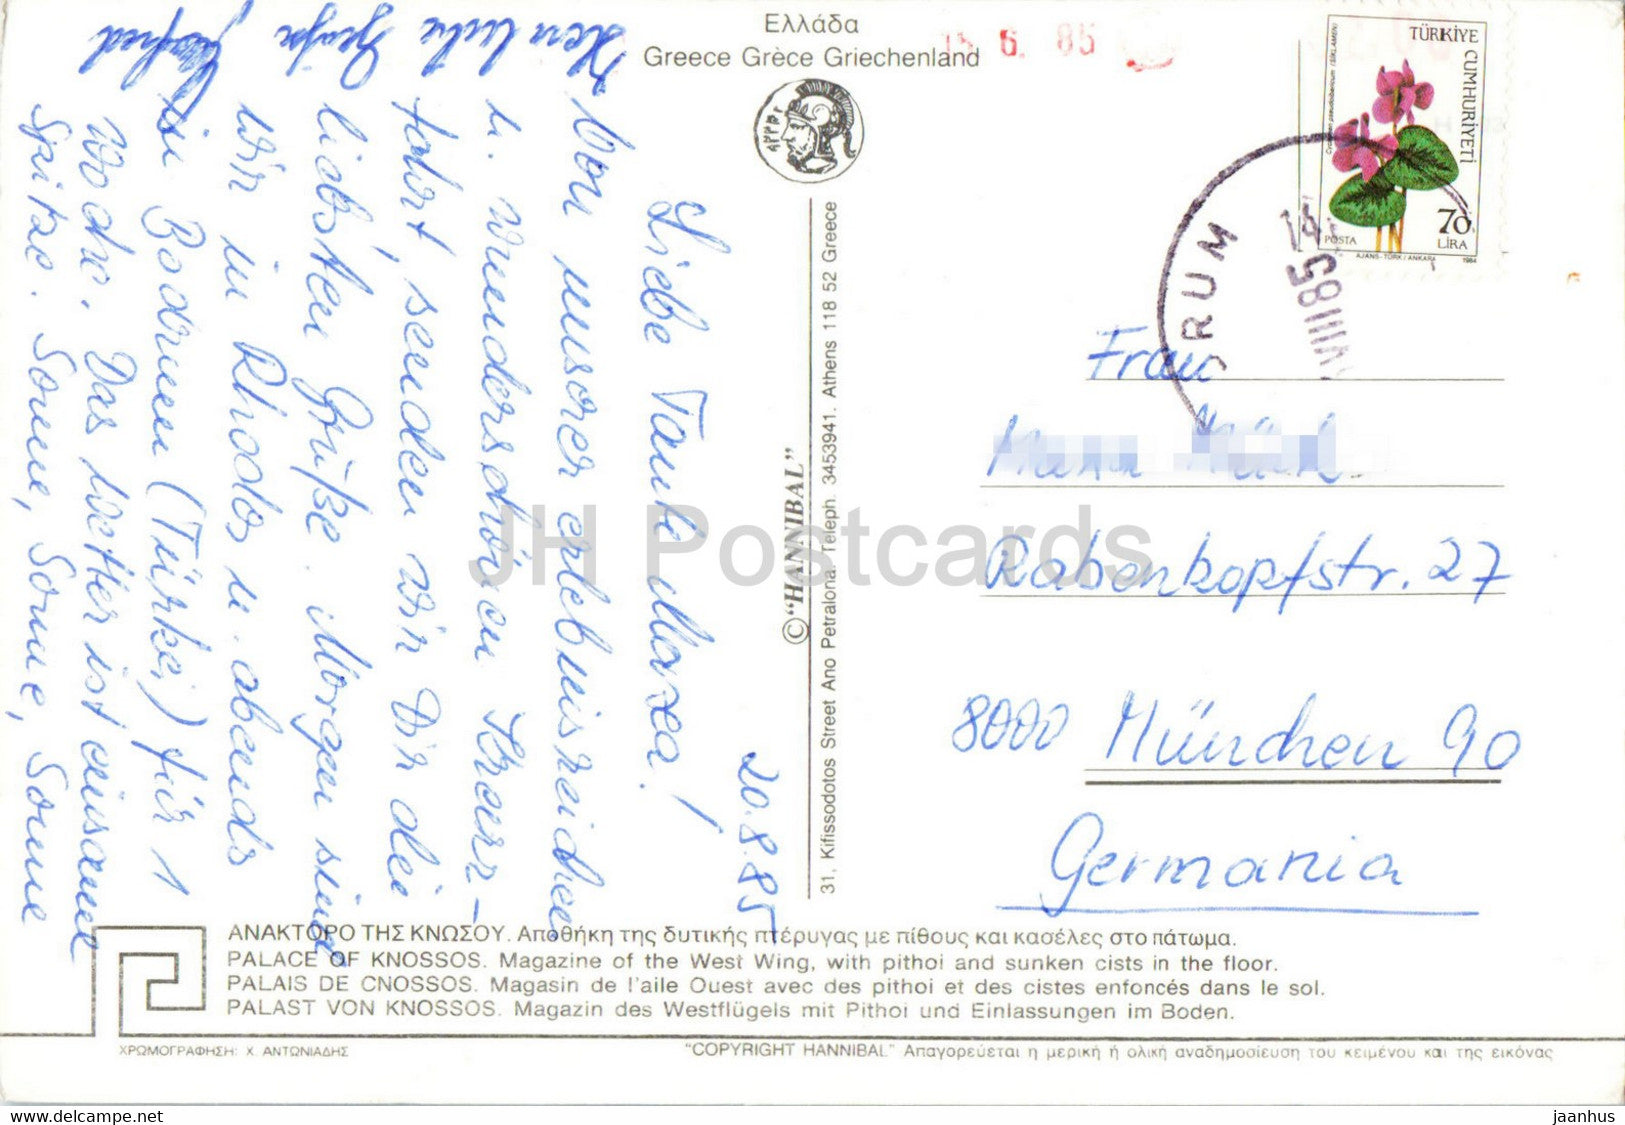 Ελλάδα
Greece Grèce Griechenland
6. 85
TÜRKİYE
CUMHURİYETİ
70
LİRA
POSTA
AJANS-TÜRK / ANKARA
1984
RUM
VIII85
20.8.85
Liebe Tante Maxa!
Von unserer erlebnisreichen
u. wunderschönen Kreta-
fahrt, senden wir Dir die
liebsten Grüße. Morgen sind
wir in Rhodos u. abends
in Bodrum (Türkei) für 1
Woche. Das Wetter ist einsame
Spitze. Sonne, Sonne, Sonne, Sonne
Frau
Rabenkopfstr. 27
8000 München 90
Germania
©"HANNIBAL"
31, Kifissodotos Street Ano Petralona. Teleph. 3453941. Athens 118 52 Greece
JH Postcards
ΑΝΑΚΤΟΡΟ ΤΗΣ ΚΝΩΣΟΥ. Αποθήκη της δυτικής πτέρυγας με πίθους και κασέλες στο πάτωμα.
PALACE OF KNOSSOS. Magazine of the West Wing, with pithoi and sunken cists in the floor.
PALAIS DE CNOSSOS. Magasin de l'aile Ouest avec des pithoi et des cistes enfoncés dans le sol.
PALAST VON KNOSSOS. Magazin des Westflügels mit Pithoi und Einlassungen im Boden.
ΧΡΩΜΟΓΡΑΦΗΣΗ: Χ. ΑΝΤΩΝΙΑΔΗΣ
"COPYRIGHT HANNIBAL" Απαγορεύεται η μερική ή ολική αναδημοσίευση του κειμένου και της εικόνας
www.delcampe.net
jaanhus